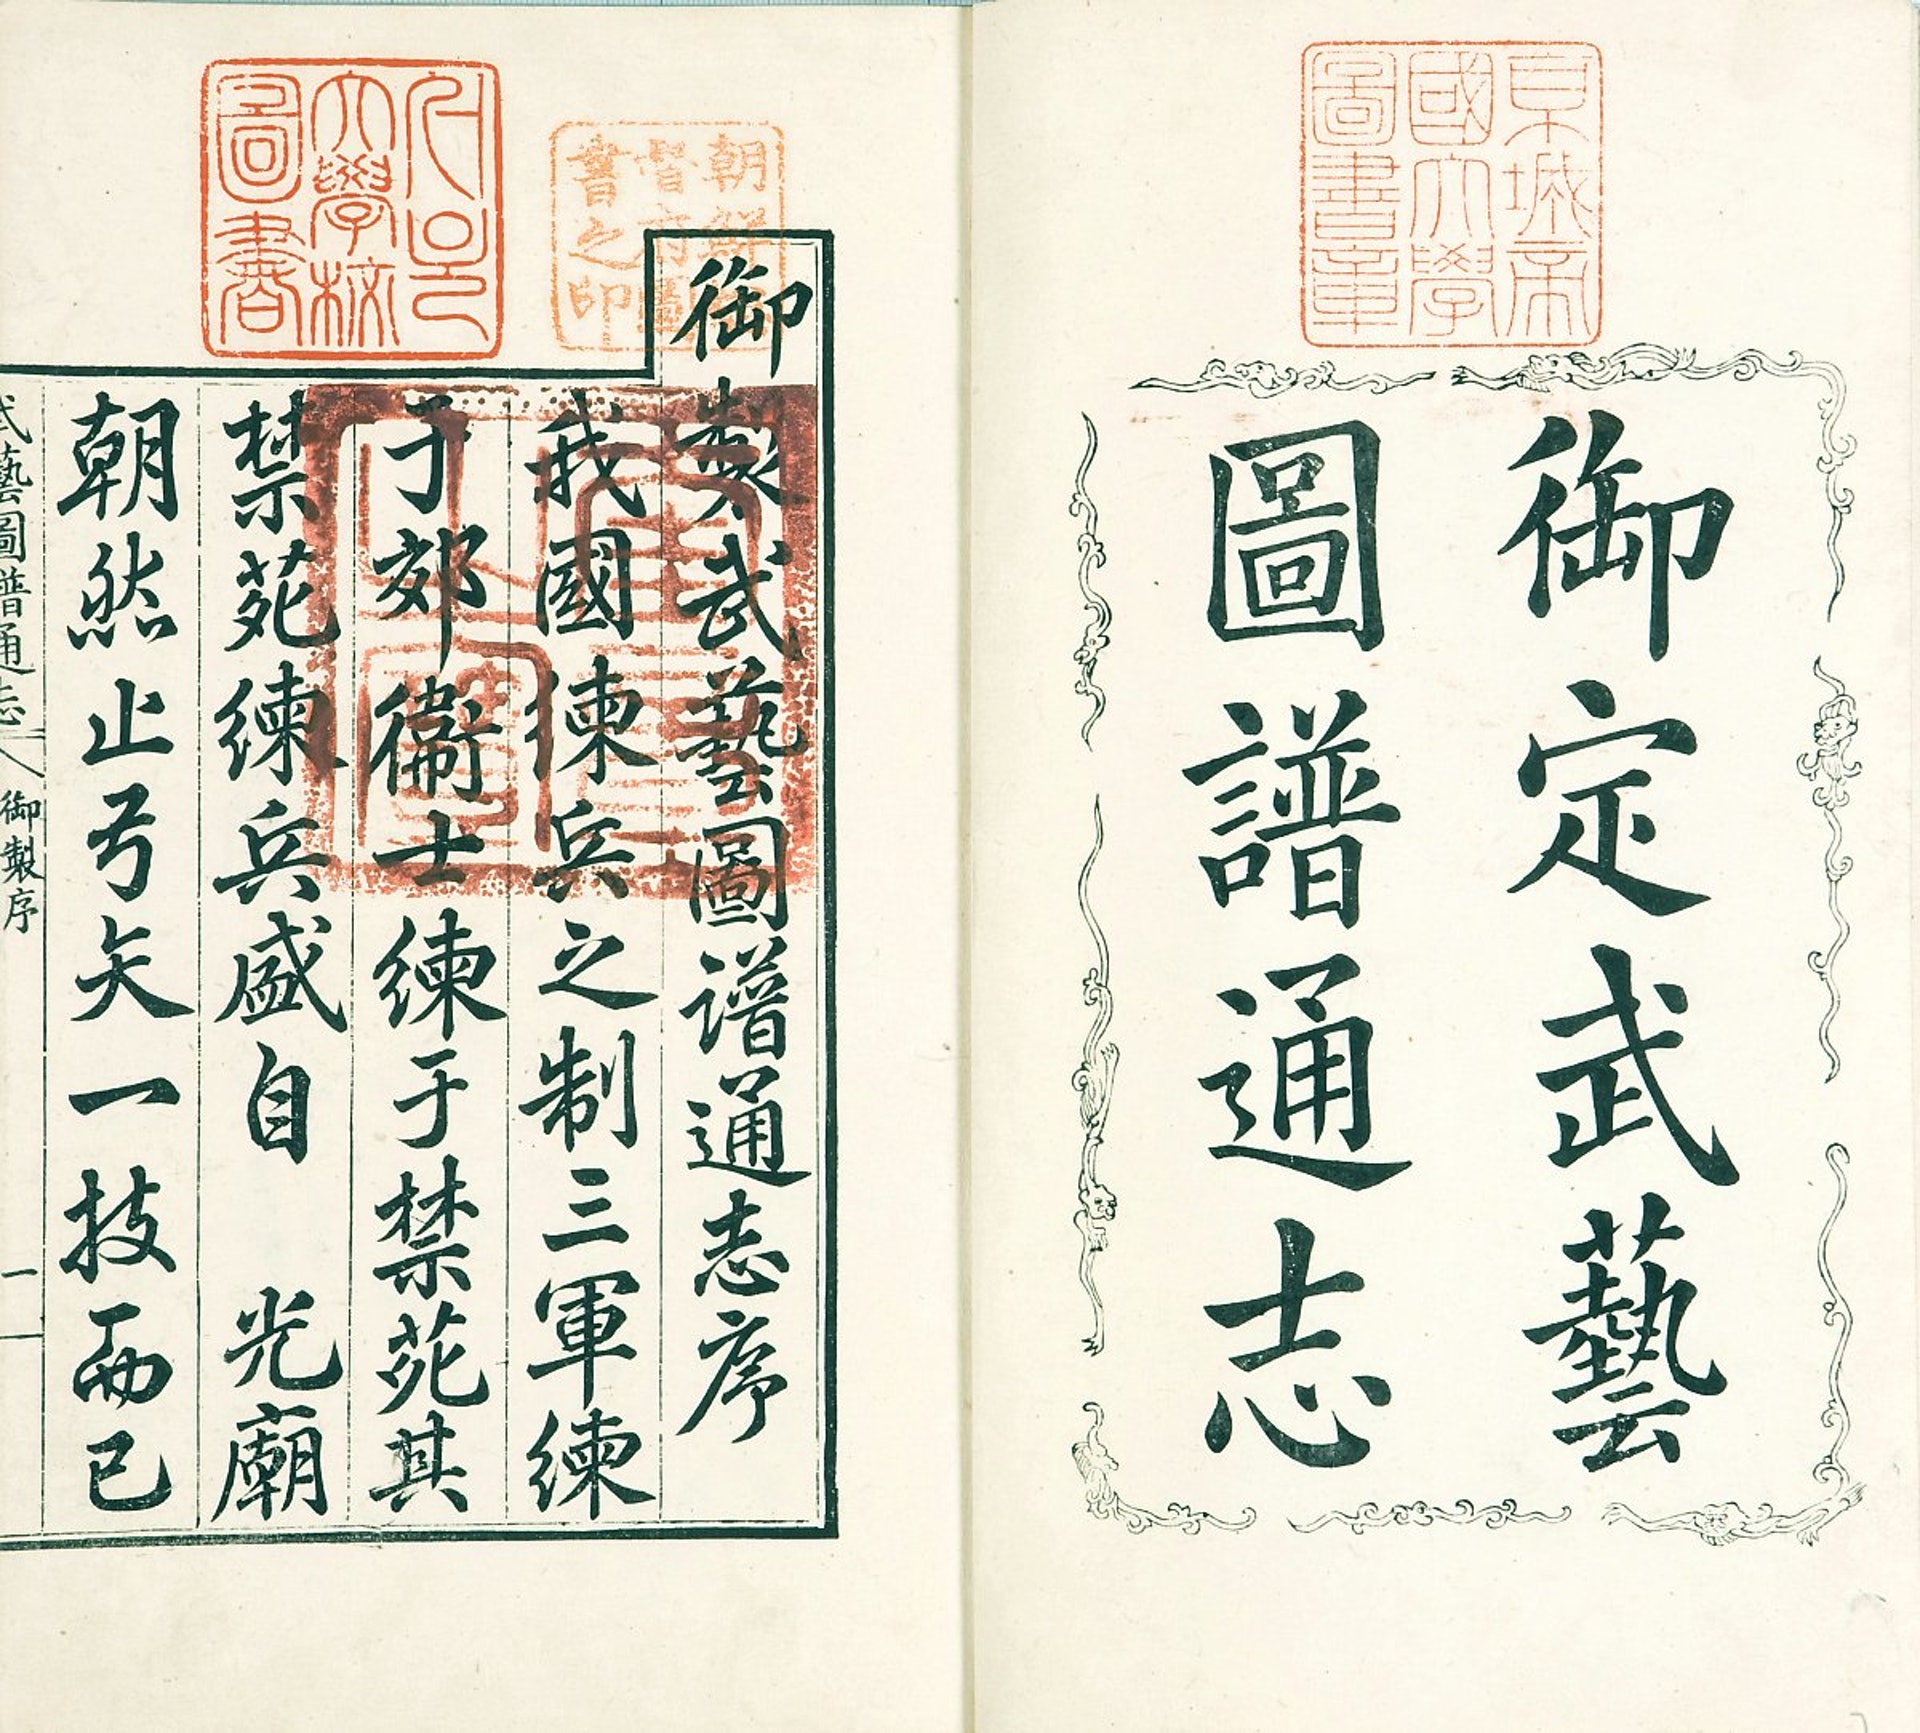 京城帝
國大學
圖書章
御定武藝
圖譜通志
朝鮮總
督府圖
書之印
서울
大學校
圖書
御製武藝圖譜通志序
我國練兵之制三軍練
于郊衛士練于禁苑其
禁苑練兵盛自 光廟
朝然止弓矢一技而已
武藝圖譜通志
御製序
一